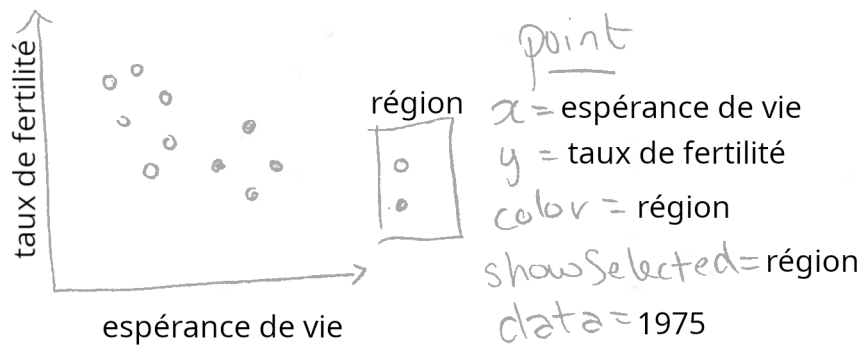 taux de fertilité
espérance de vie
région
point
x = espérance de vie
y = taux de fertilité
color = région
showSelected = région
data = 1975